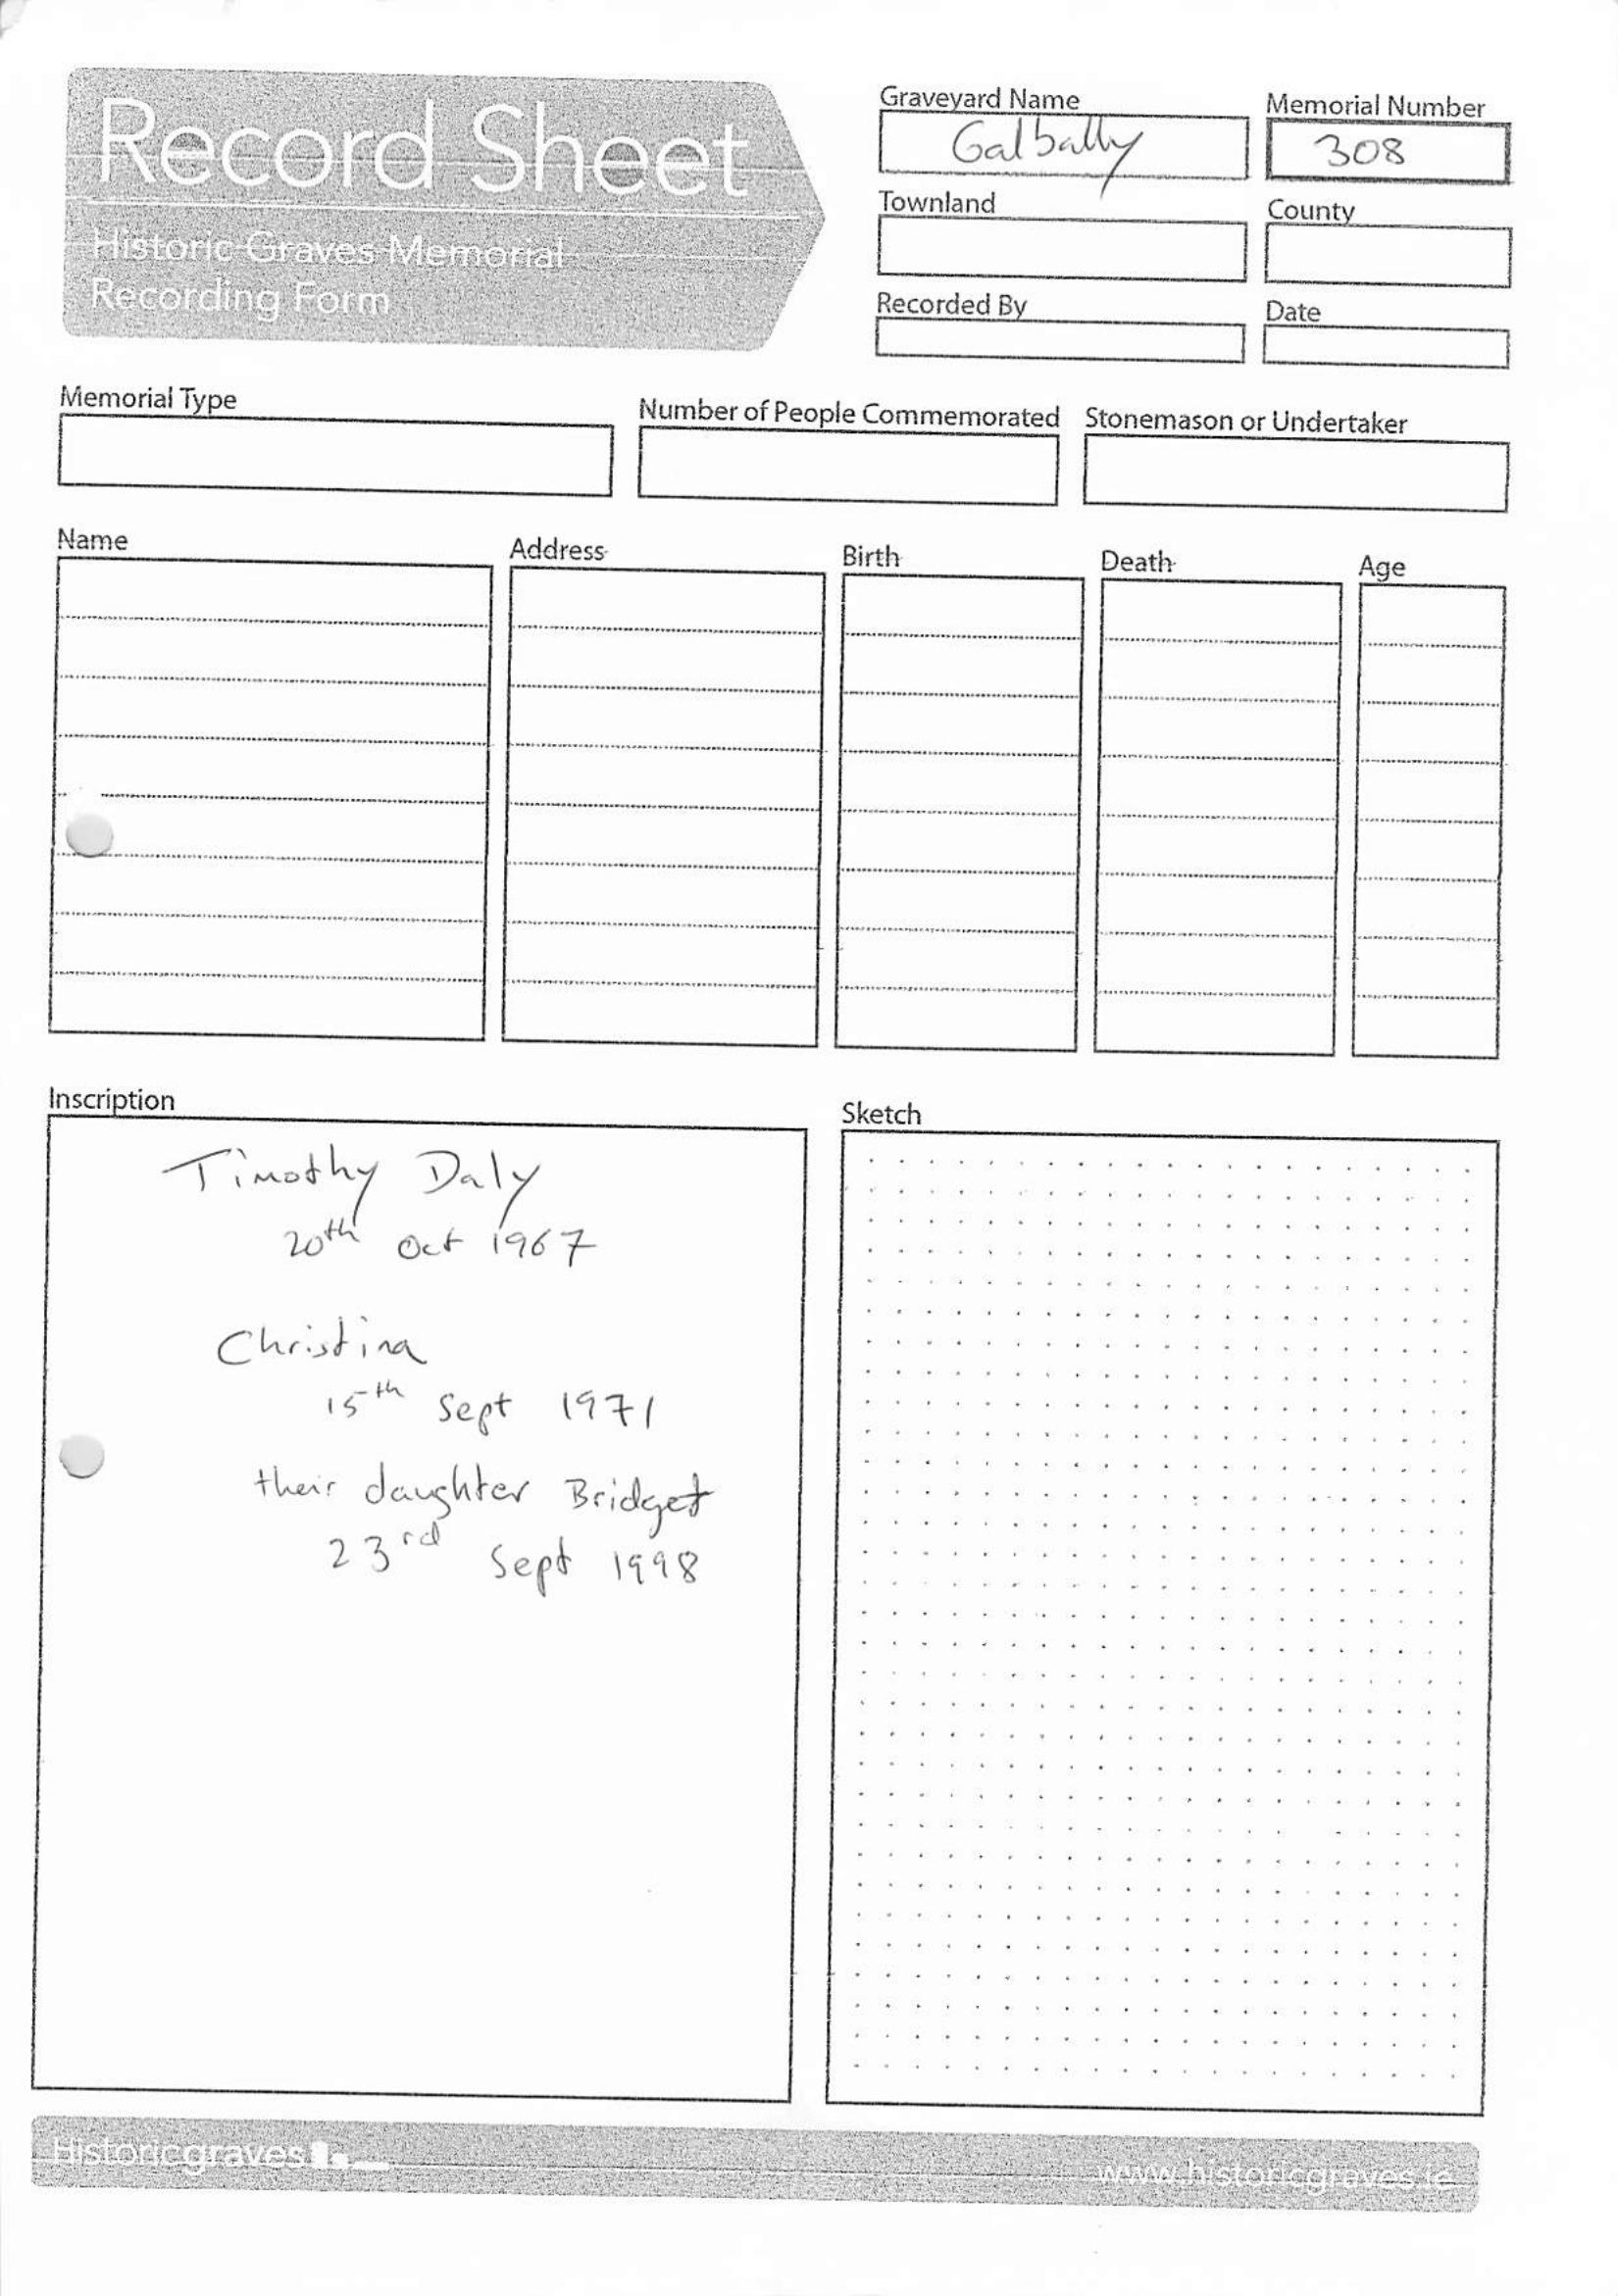 Record Sheet
Historic Graves Memorial
Recording Form
Graveyard Name
Galbally
Memorial Number
308
Townland
County
Recorded By
Date
Memorial Type
Number of People Commemorated
Stonemason or Undertaker
Name
Address
Birth
Death
Age
Inscription
Timothy Daly
20th Oct 1967
Christina
15th Sept 1971
their daughter Bridget
23rd Sept 1998
Sketch
Historicgraves
www.historicgraves.ie